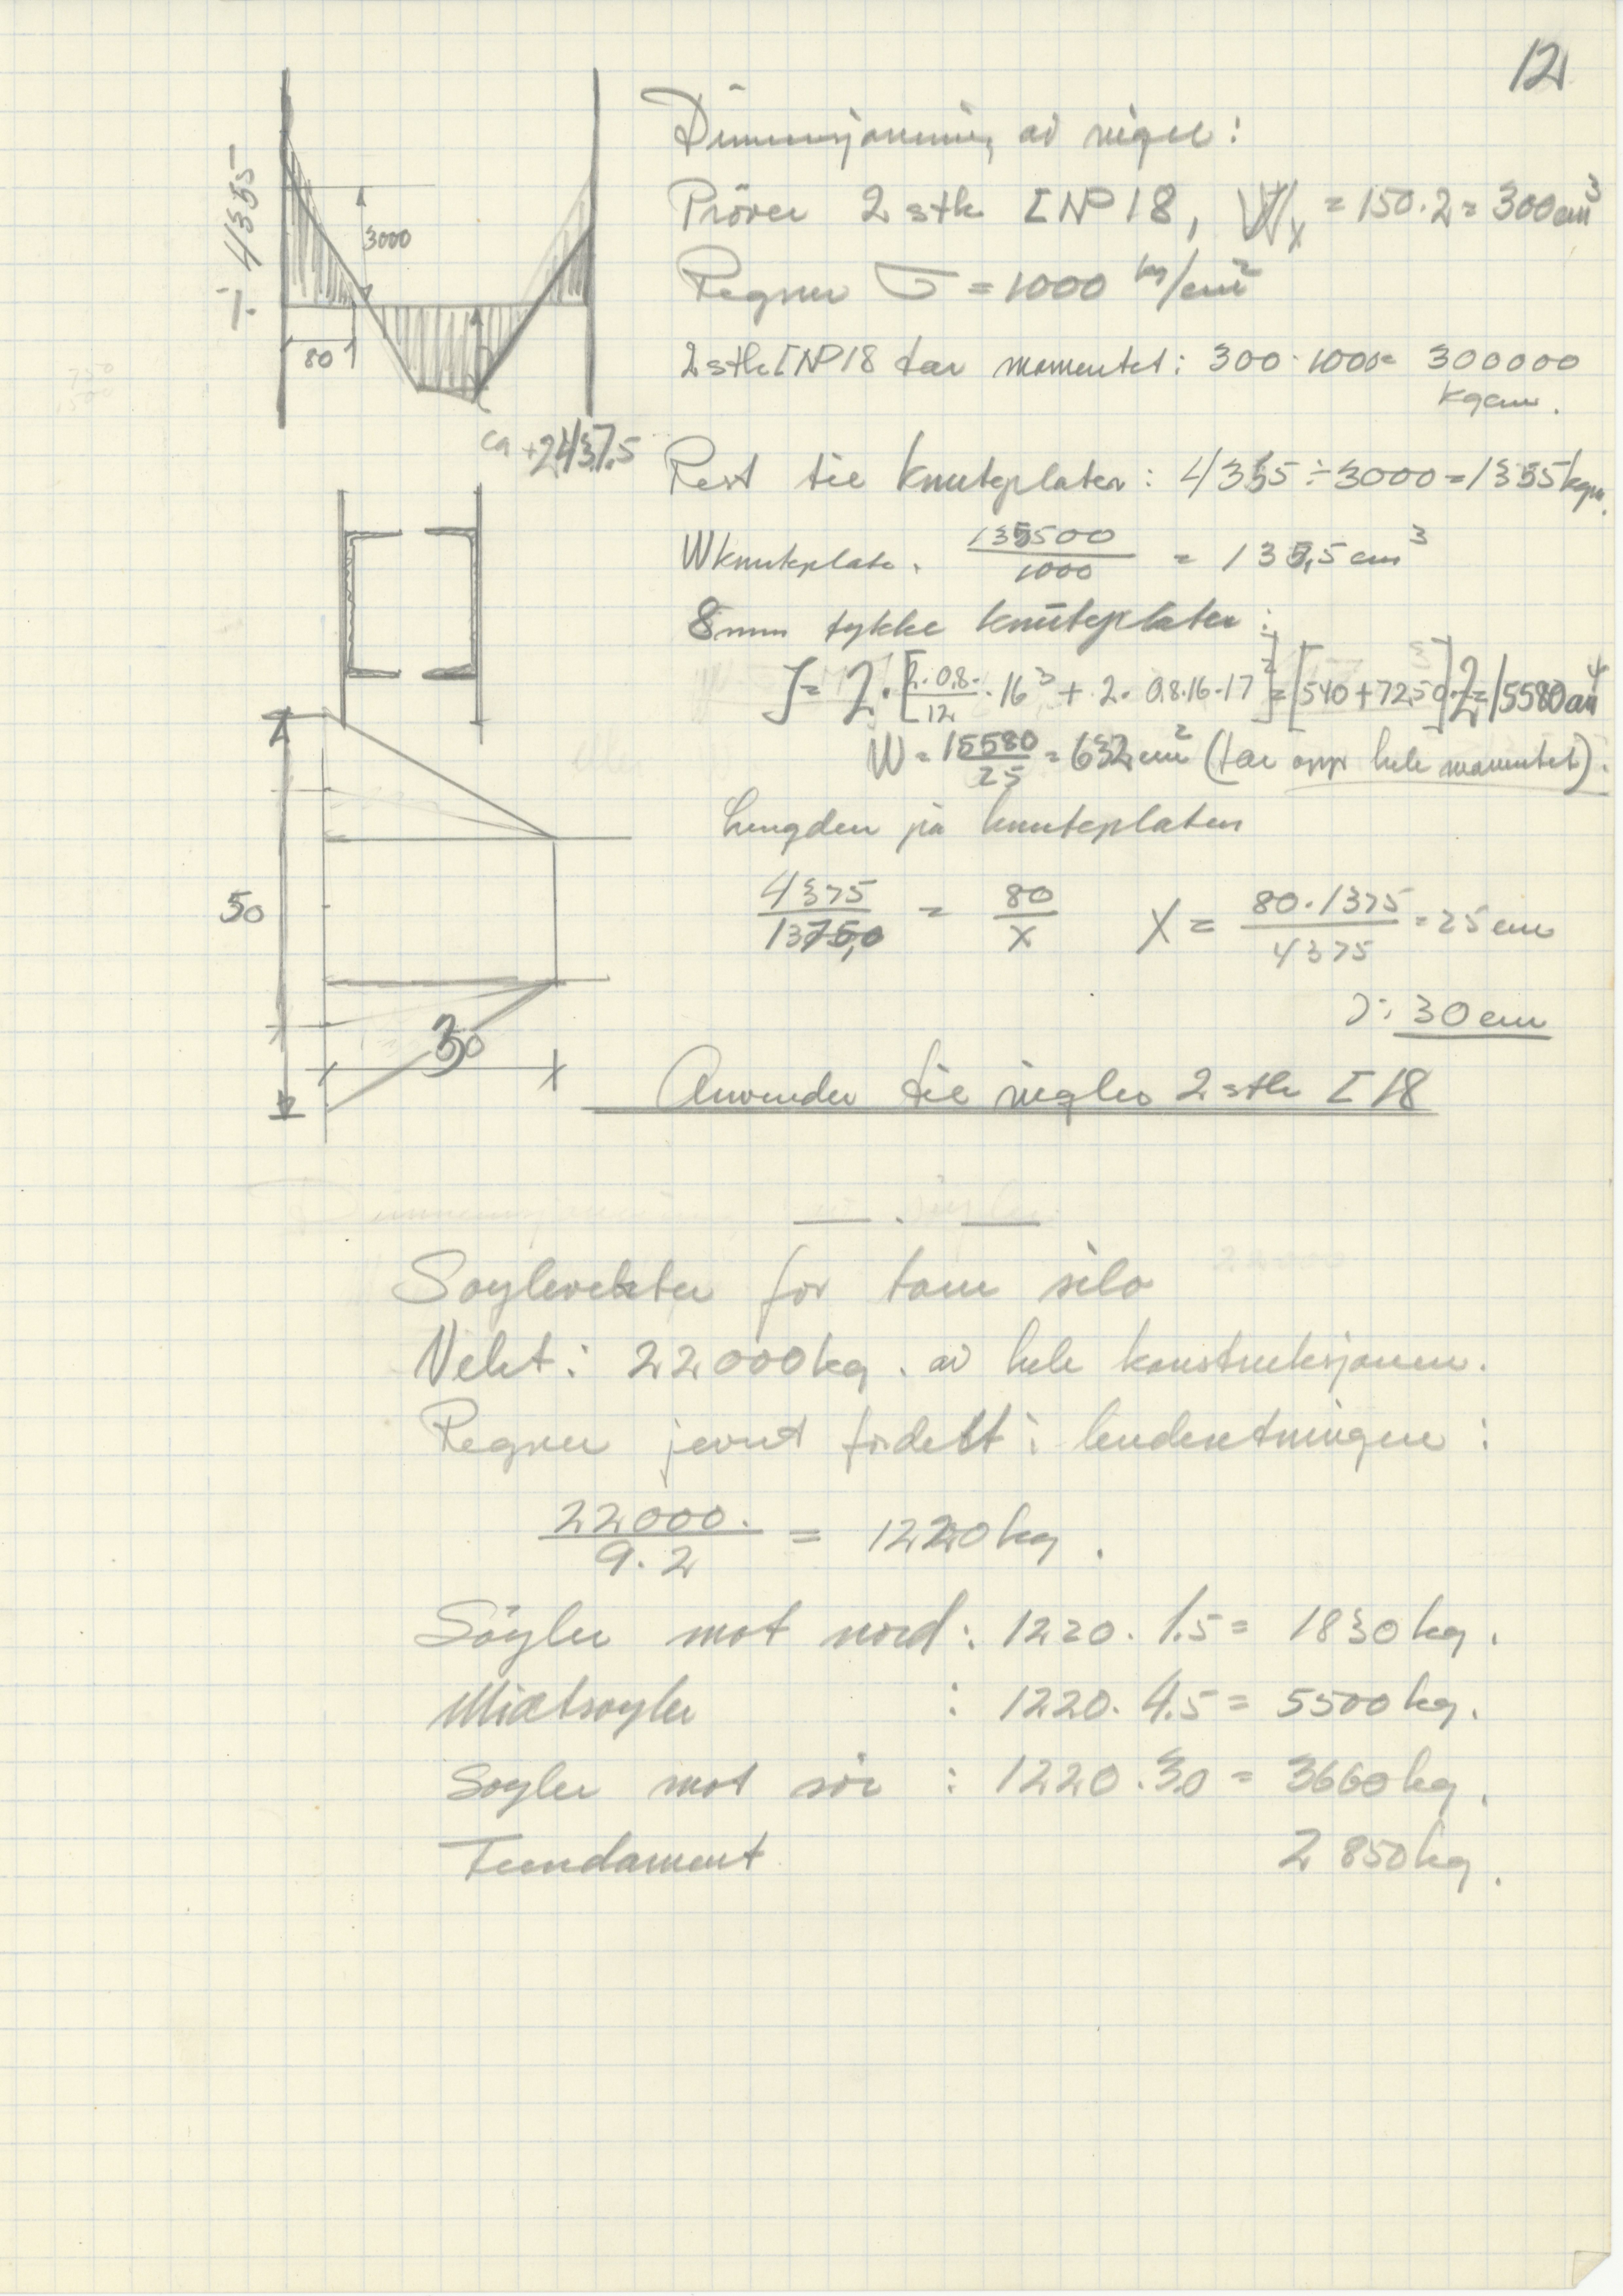 12
Dimensjonering av rigel:
Pröver 2 stk [ NP 18, Wx = 150·2 = 300 cm³
Regner σ = 1000 kg/cm²
2 stk [ NP 18 tar momentet: 300·1000= 300000
kgcm.
÷ 4355
3000
80
ca +2437.5
Rest til knuteplater: 4355÷3000=1355kgm.
W knuteplate. 135500/1000 = 135,5 cm³
8mm tykke knuteplater:
J= 2·[2·0.8·/12 ·16³ + 2· 0.8·16·17²]=[540+7250]2=15580cm⁴
W = 15580/25 = 632 cm² (tar opp hele momentet).
Lengden på knuteplaten
4375/1375,0 = 80/X X = 80·1375/4375 = 25 cm
50
ɔ: 30 cm
30
Anvender til rigler 2 stk [ 18
Søylevekter for tom silo
Vekt: 22000kg. av hele konstruksjonen.
Regner jevnt fordelt i lenderetningen:
22000./9·2 = 1220kg.
Söyler mot nord: 1220· 1.5= 1830kg.
Midtsøyler : 1220· 4.5= 5500kg.
Søyler mot sör : 1220·3.0 = 3660kg.
Fundament 2850kg.